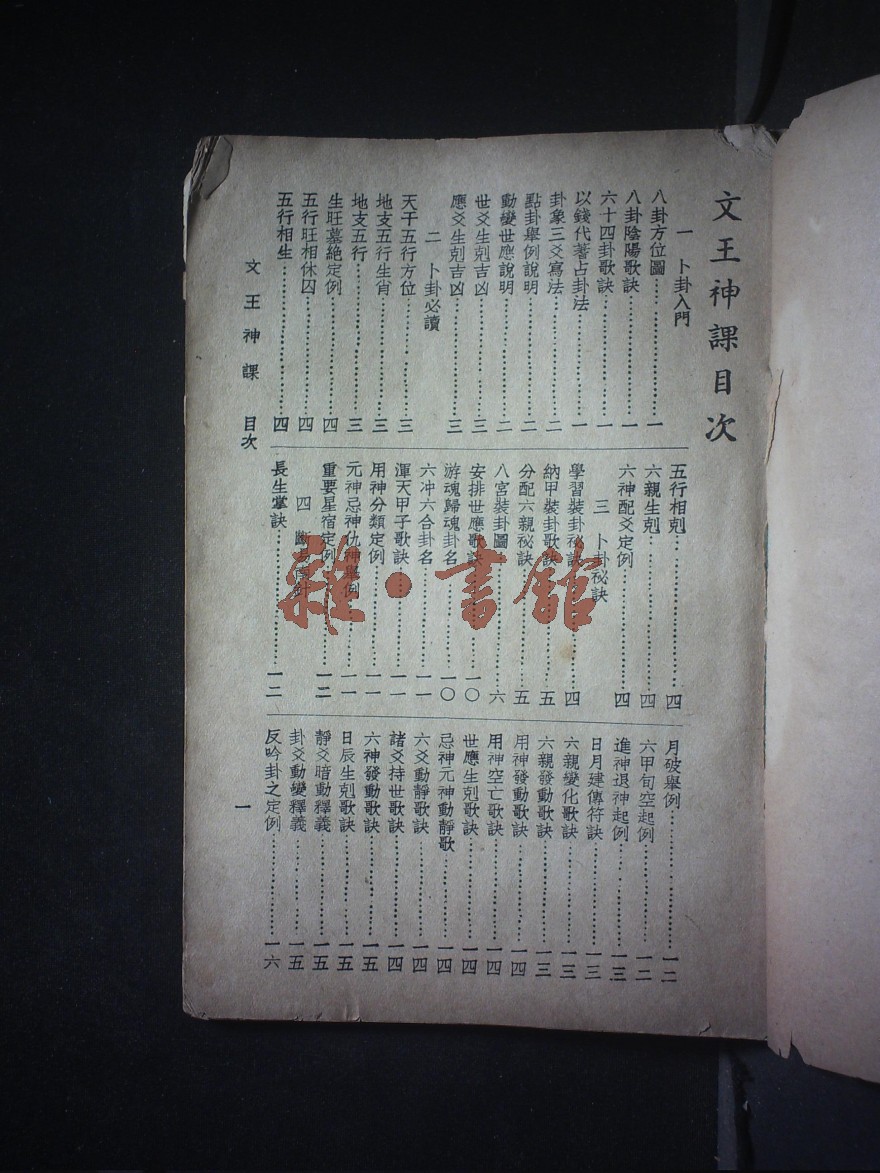 文王神課目次
一 卜卦入門
八卦方位圖……一
八卦陰陽歌訣……一
六十四卦歌訣……一
以錢代蓍占卦法……一
卦象三爻寫法……二
點卦舉例說明……二
動變世應說明……二
世爻生剋吉凶……三
應爻生剋吉凶……三
二 卜卦必讀
天干五行方位……三
地支五行生肖……三
地支五行……三
生旺墓絕定例……四
五行旺相休囚……四
五行相生……四
五行相剋……四
六親生剋……四
六神配爻定例……四
三 卜卦祕訣
學習裝卦祕訣……四
納甲裝卦歌訣……五
分配六親祕訣……五
八宮裝卦圖……六
安排世應歌訣……一〇
游魂歸魂卦名……一〇
六冲六合卦名……一一
渾天甲子歌訣……一一
用神分類定例……一一
元神忌神仇神舉例……一一
重要星宿定例……一二
四 斷易
長生掌訣……一二
月破舉例……一二
六甲旬空起例……一二
進神退神起例……一三
日月建傳符訣……一三
六親變化歌訣……一三
六親發動歌訣……一三
用神發動歌訣……一四
用神空亡歌訣……一四
世應生剋歌訣……一四
忌神元神動靜歌……一四
六爻動靜歌訣……一四
諸爻持世歌訣……一四
六神發動歌訣……一五
日辰生剋歌訣……一五
靜爻暗動釋義……一五
卦爻動變釋義……一五
反吟卦之定例……一六
文王神課 目次
一
雜·書館